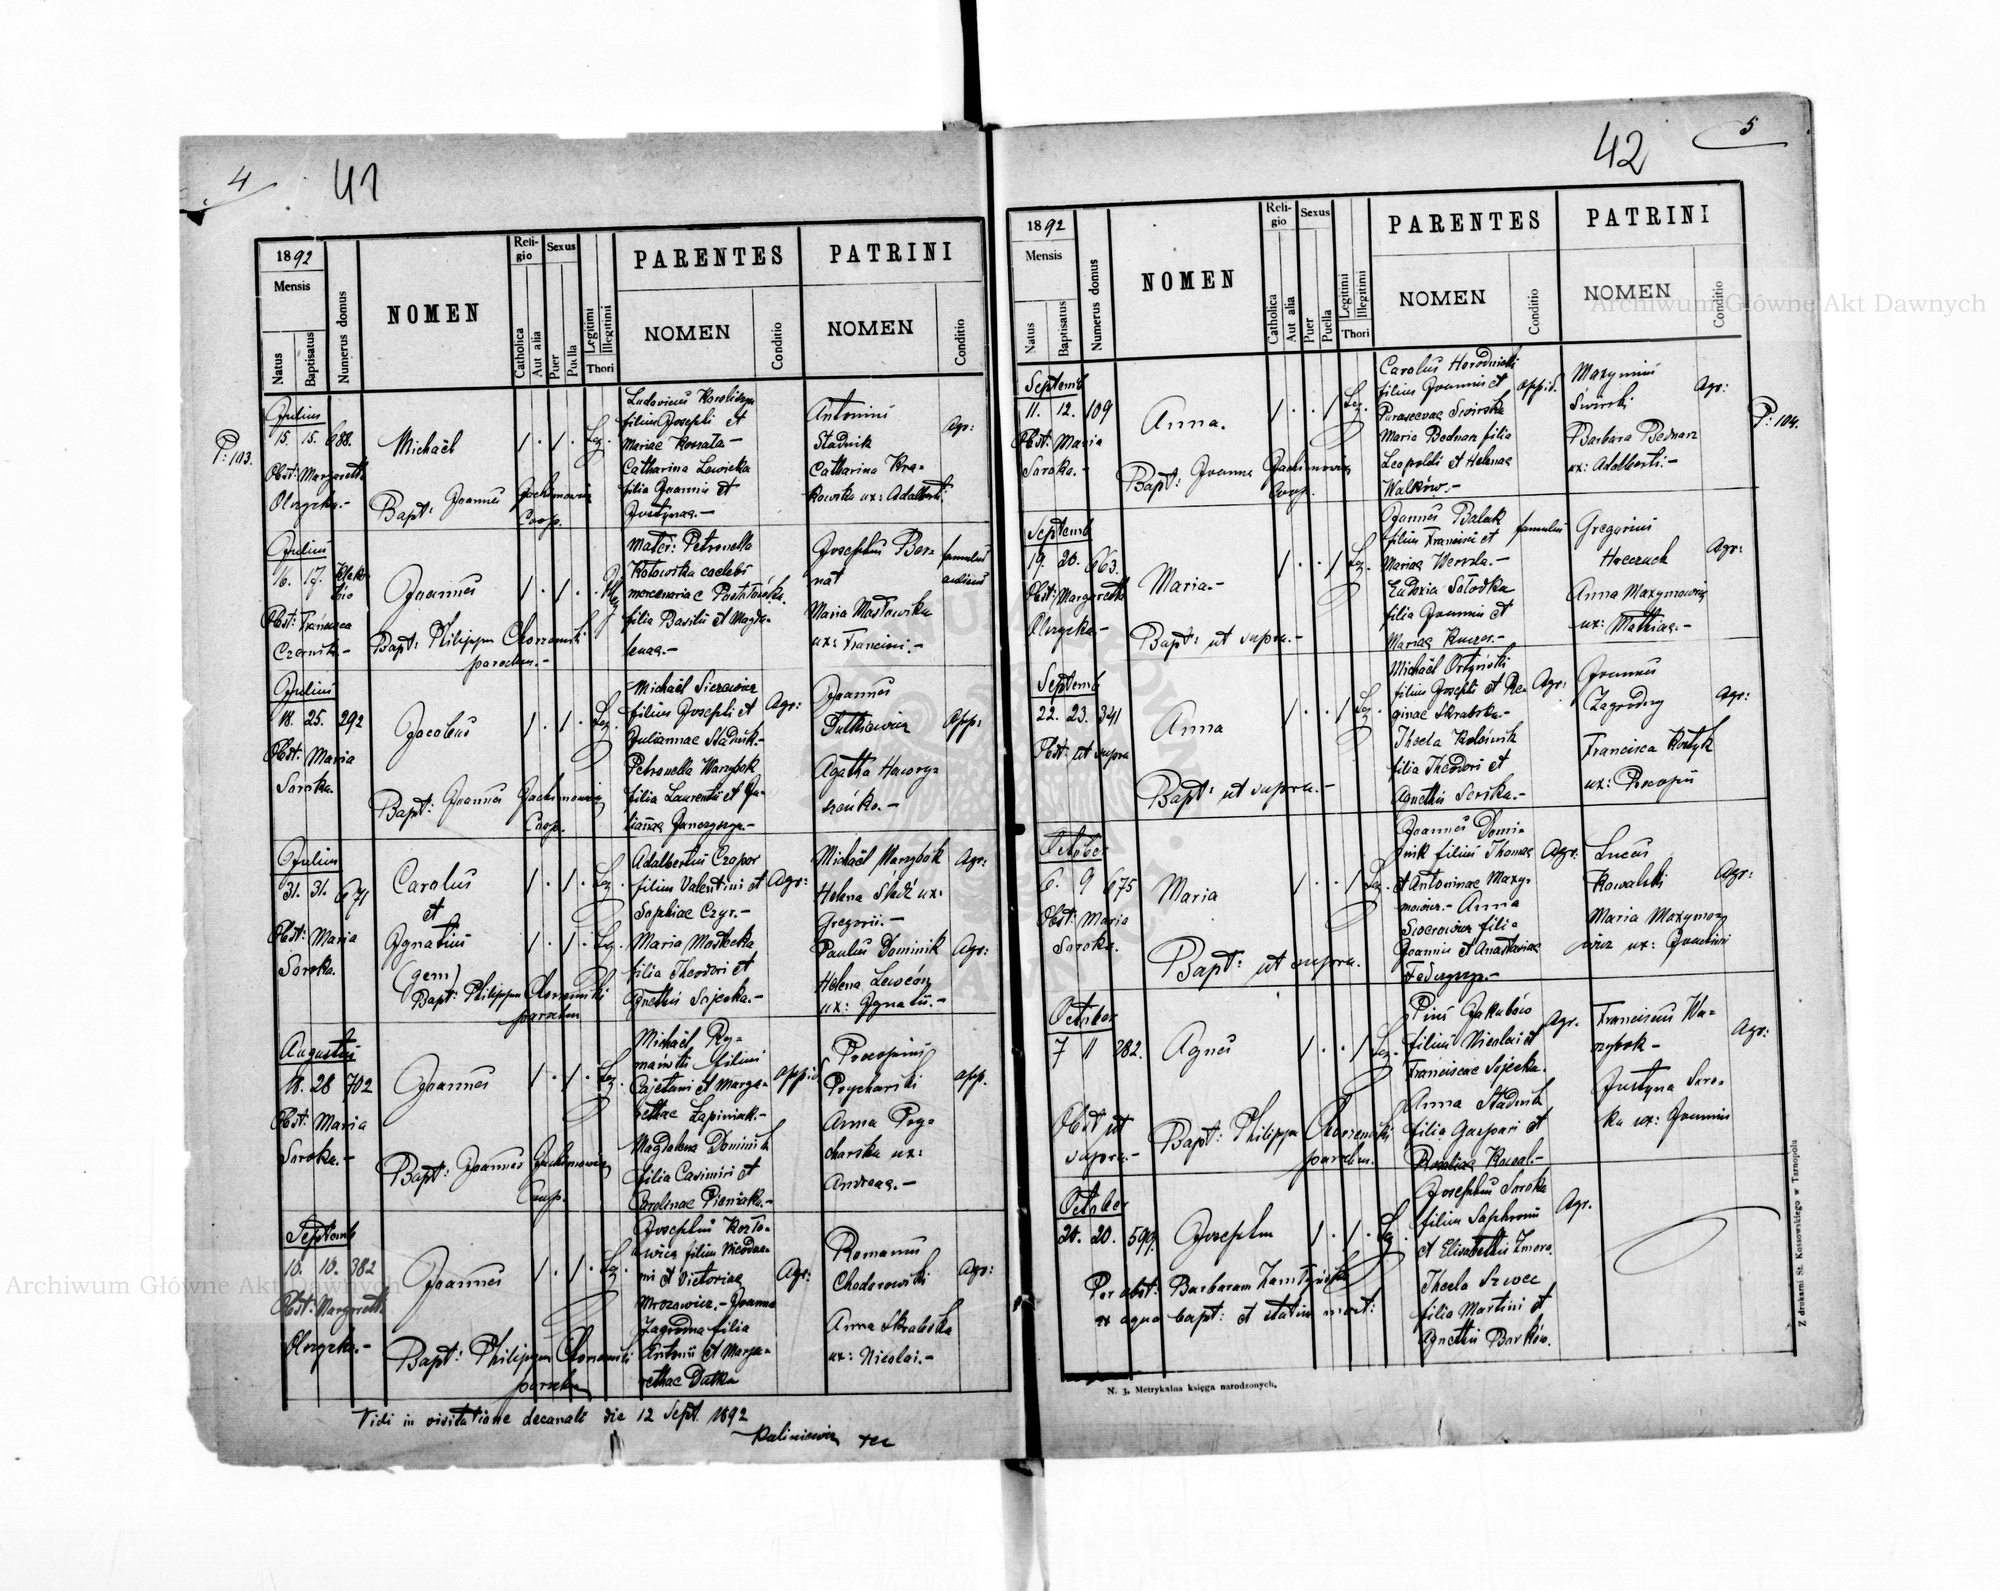 4
41
1892
Mensis
Natus
Baptisatus
Numerus domus
NOMEN
Religio
Catholica
Aut alia
Sexus
Puer
Puella
Thori
Legitimi
Illegitimi
PARENTES
NOMEN
Conditio
PATRINI
NOMEN
Conditio
P: 103.
Julius
15. 15. 688.
Obst: Margaretha
Olszyzka.-
Michaël
Bapt: Joannes Jachimowicz
Coop.
Leg.
filius Josephi et
Catharina Lewicka
filia Joannis et
Justynae.-
Antonius
Stadnik
Catharina Kra-
kowska ux: Adalberti
Agr:
Julius
16. 17.
Obst: Francisca
Joannes
Bapt: Philippus Chorzemski
parochus.-
Mater: Petronella
Kotowska caelebs
filia Basilii et Magda-
lenae.-
Josephus Ber-
nat
Maria Masłowska
ux: Francisci.-
famulus
Julius
18. 25. 292
Obst: Maria
Soroka.
Jacobus
Bapt: Joannes Jachimowicz
Coop.
Leg.
Michaël Sierowicz
filius Josephi et
Juliannae Stadnik.-
Petronella Warzybok
filia Laurentii et Ju-
liannae
Agr:
Joannes
Dutkiewicz
Agatha Hawry-
App:
Julius
31. 31. 671
Obst: Maria
Soroka.
Carolus
et
Ignatius
(gem)
Bapt: Philippus Chorzemski
parochus
Leg.
Leg.
Adalbertus Czapor
filius Valentini et
Sophiae Czyr.-
Maria Mostecka
filia Theodori et
Agnethis Sojecka.-
Agr:
Michaël Warzybok
Helena Śledź ux:
Gregorii.-
Paulus Dominik
Helena
ux: Ignatii.-
Agr:
Agr:
Augustus
18. 28 702
Obst: Maria
Soroka.-
Joannes
Bapt: Joannes Jachimowicz
Coop.
Leg.
Michaël Ry-
filius
Cajetani et Marga-
rethae Łapiniak.-
Magdalena Dominik
filia Casimiri et
Carolinae Pieniaka.-
oppid
Procopius
Prycharski
Anna Pry-
charska ux:
Andreae.-
opp.
Septemb
10. 10. 382
Obst: Margaretha
Olszyzka.-
Joannes
Bapt: Philippus Chorzemski
parochus
Leg.
Josephus Kozło-
filius Nicode-
mi et Victoriae
Mrozowicz.- Joanna
Zagrodna filia
Antonii et Marga-
rethae Dutka
Agr:
Romanus
Chodorowski
Anna Skrabska
ux: Nicolai.-
Agr:
Vidi in visitatione decanali die 12 Sept. 1892
Kaliniewicz
5
42
1892
Mensis
Natus
Baptisatus
Numerus domus
NOMEN
Religio
Catholica
Aut alia
Sexus
Puer
Puella
Thori
Legitimi
Illegitimi
PARENTES
NOMEN
Conditio
PATRINI
NOMEN
Conditio
P: 104.
Septemb
11. 12. 109
Obst: Maria
Soroka.-
Anna.
Bapt: Joannes Jachimowicz
Coop.
Leg.
Carolus Horodniski
filius Joannis et
Parascevae Swirska
Maria Bednarz filia
Leopoldi et Helenae
Walków.-
oppid.
Maxymus
Swirski
Barbara Bednarz
ux: Adalberti.-
Agr:
Septemb
19. 20. 663.
Obst: Margaretha
Olszyzka.-
Maria-
Bapt: ut supra.-
Leg.
Joannes Balak
filius Francisci et
Eudoxia Sołodka
filia Joannis et
Mariae
famulus
Gregorius
Anna Maxymowicz
ux: Mathiae.-
Agr:
Septemb
22. 23. 341
Obst: ut supra
Anna
Bapt: ut supra.-
Leg.
Michaël Ortyński
filius Josephi et Re-
ginae Skrabska.-
Thecla
filia Theodori et
Agnethis
Agr:
Joannes
Zagrodny
Francisca Kostyk
ux: Procopii
Agr:
October
6. 9 675
Obst: Maria
Soroka.
Maria
Bapt: ut supra.
Leg.
Joannes Domi-
nik filius Thomae
et Antoninae Maxy-
mowicz.- Anna
Sierowicz filia
Joannis et Anastasiae
Agr:
Lucas
Kowalski
Maria Maxymow-
icz ux:
Agr:
October
7 11 282.
Obst ut
supra.-
Agnes
Bapt: Philippus Chorzemski
parochus.
Leg.
Pius Jakubów
filius Nicolai et
Franciscae Sojecka.
Anna Stadnik
filia Gaspari et
Rosaliae Kowal.-
Agr.
Franciscus Wa-
rzybok-
Justyna Soro-
ka ux: Joannis
Agr:
October
20. 20. 599.
Josephus
Per obst: Barbaram
ex aqua bapt: et statim mort:
Leg.
Josephus Soroka
filius Saphronii
et Elisabethis Zmora.
Thecla Szwec
filia Martini et
Agnethis Barków.
Agr.
N. 3. Metrykalna księga narodzonych.
Z drukarni St. Kossowskiego w Tarnopolu
Archiwum Główne Akt Dawnych
Archiwum Główne Akt Dawnych